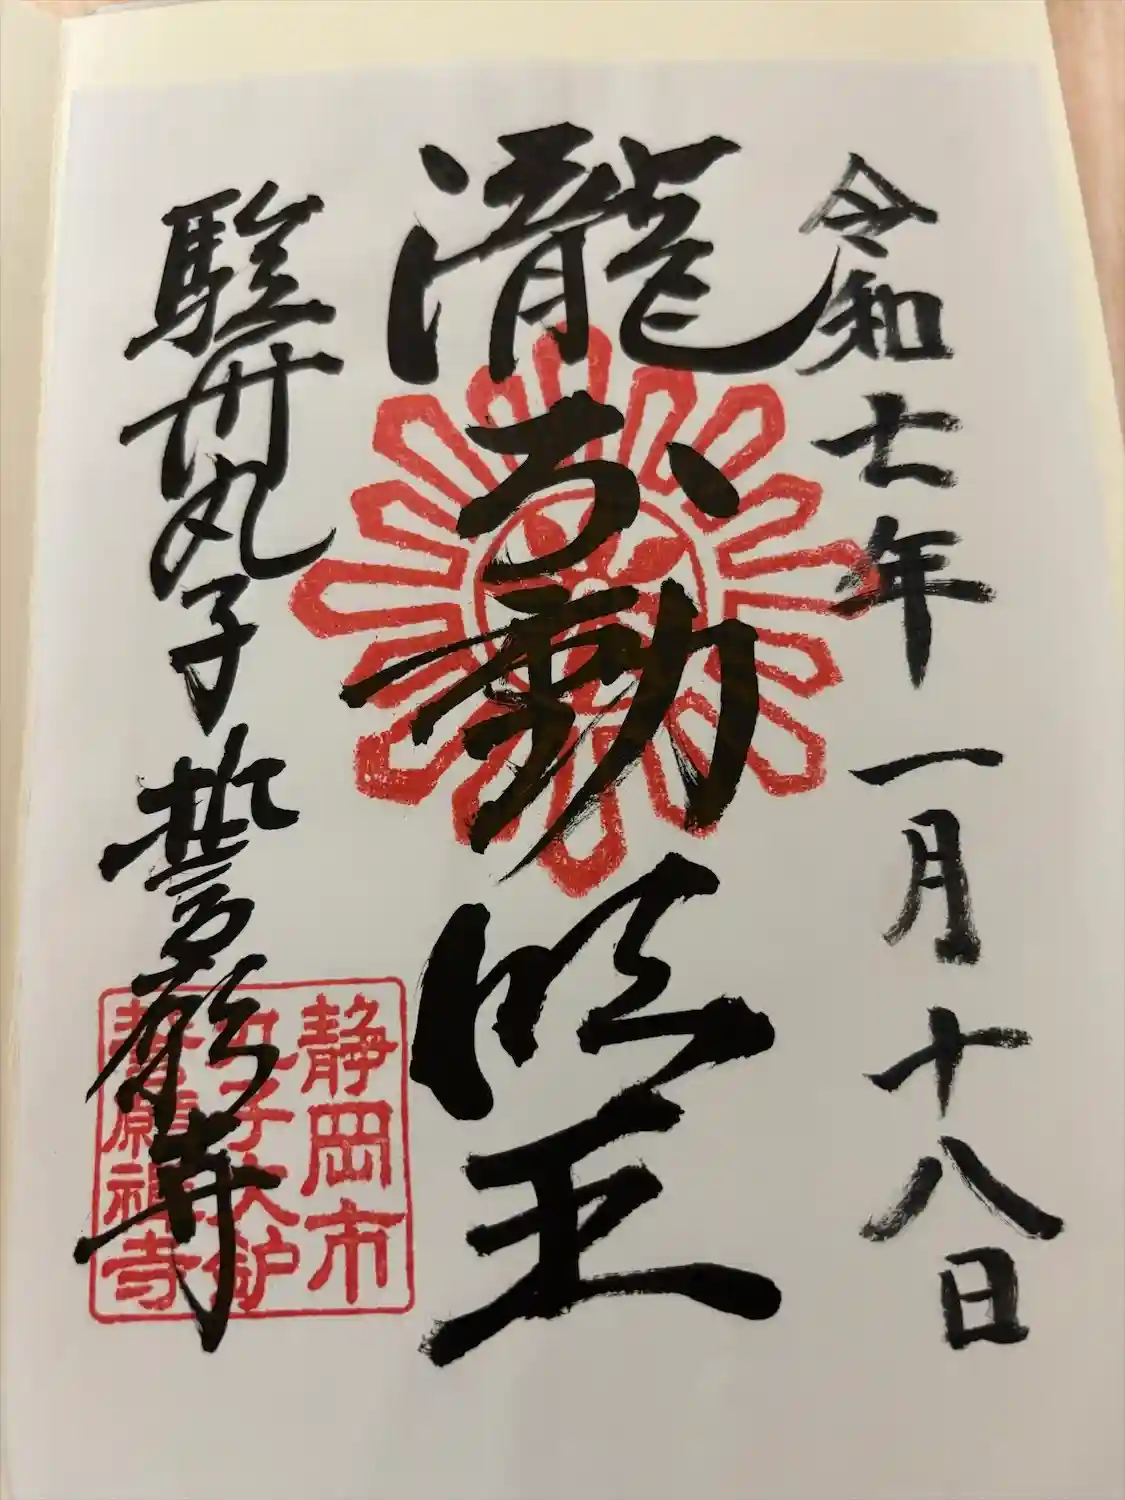 令和七年 一月十八日
瀧不動明王
駿州丸子 誓願寺
静岡市
丸子大鈩
誓願禅寺